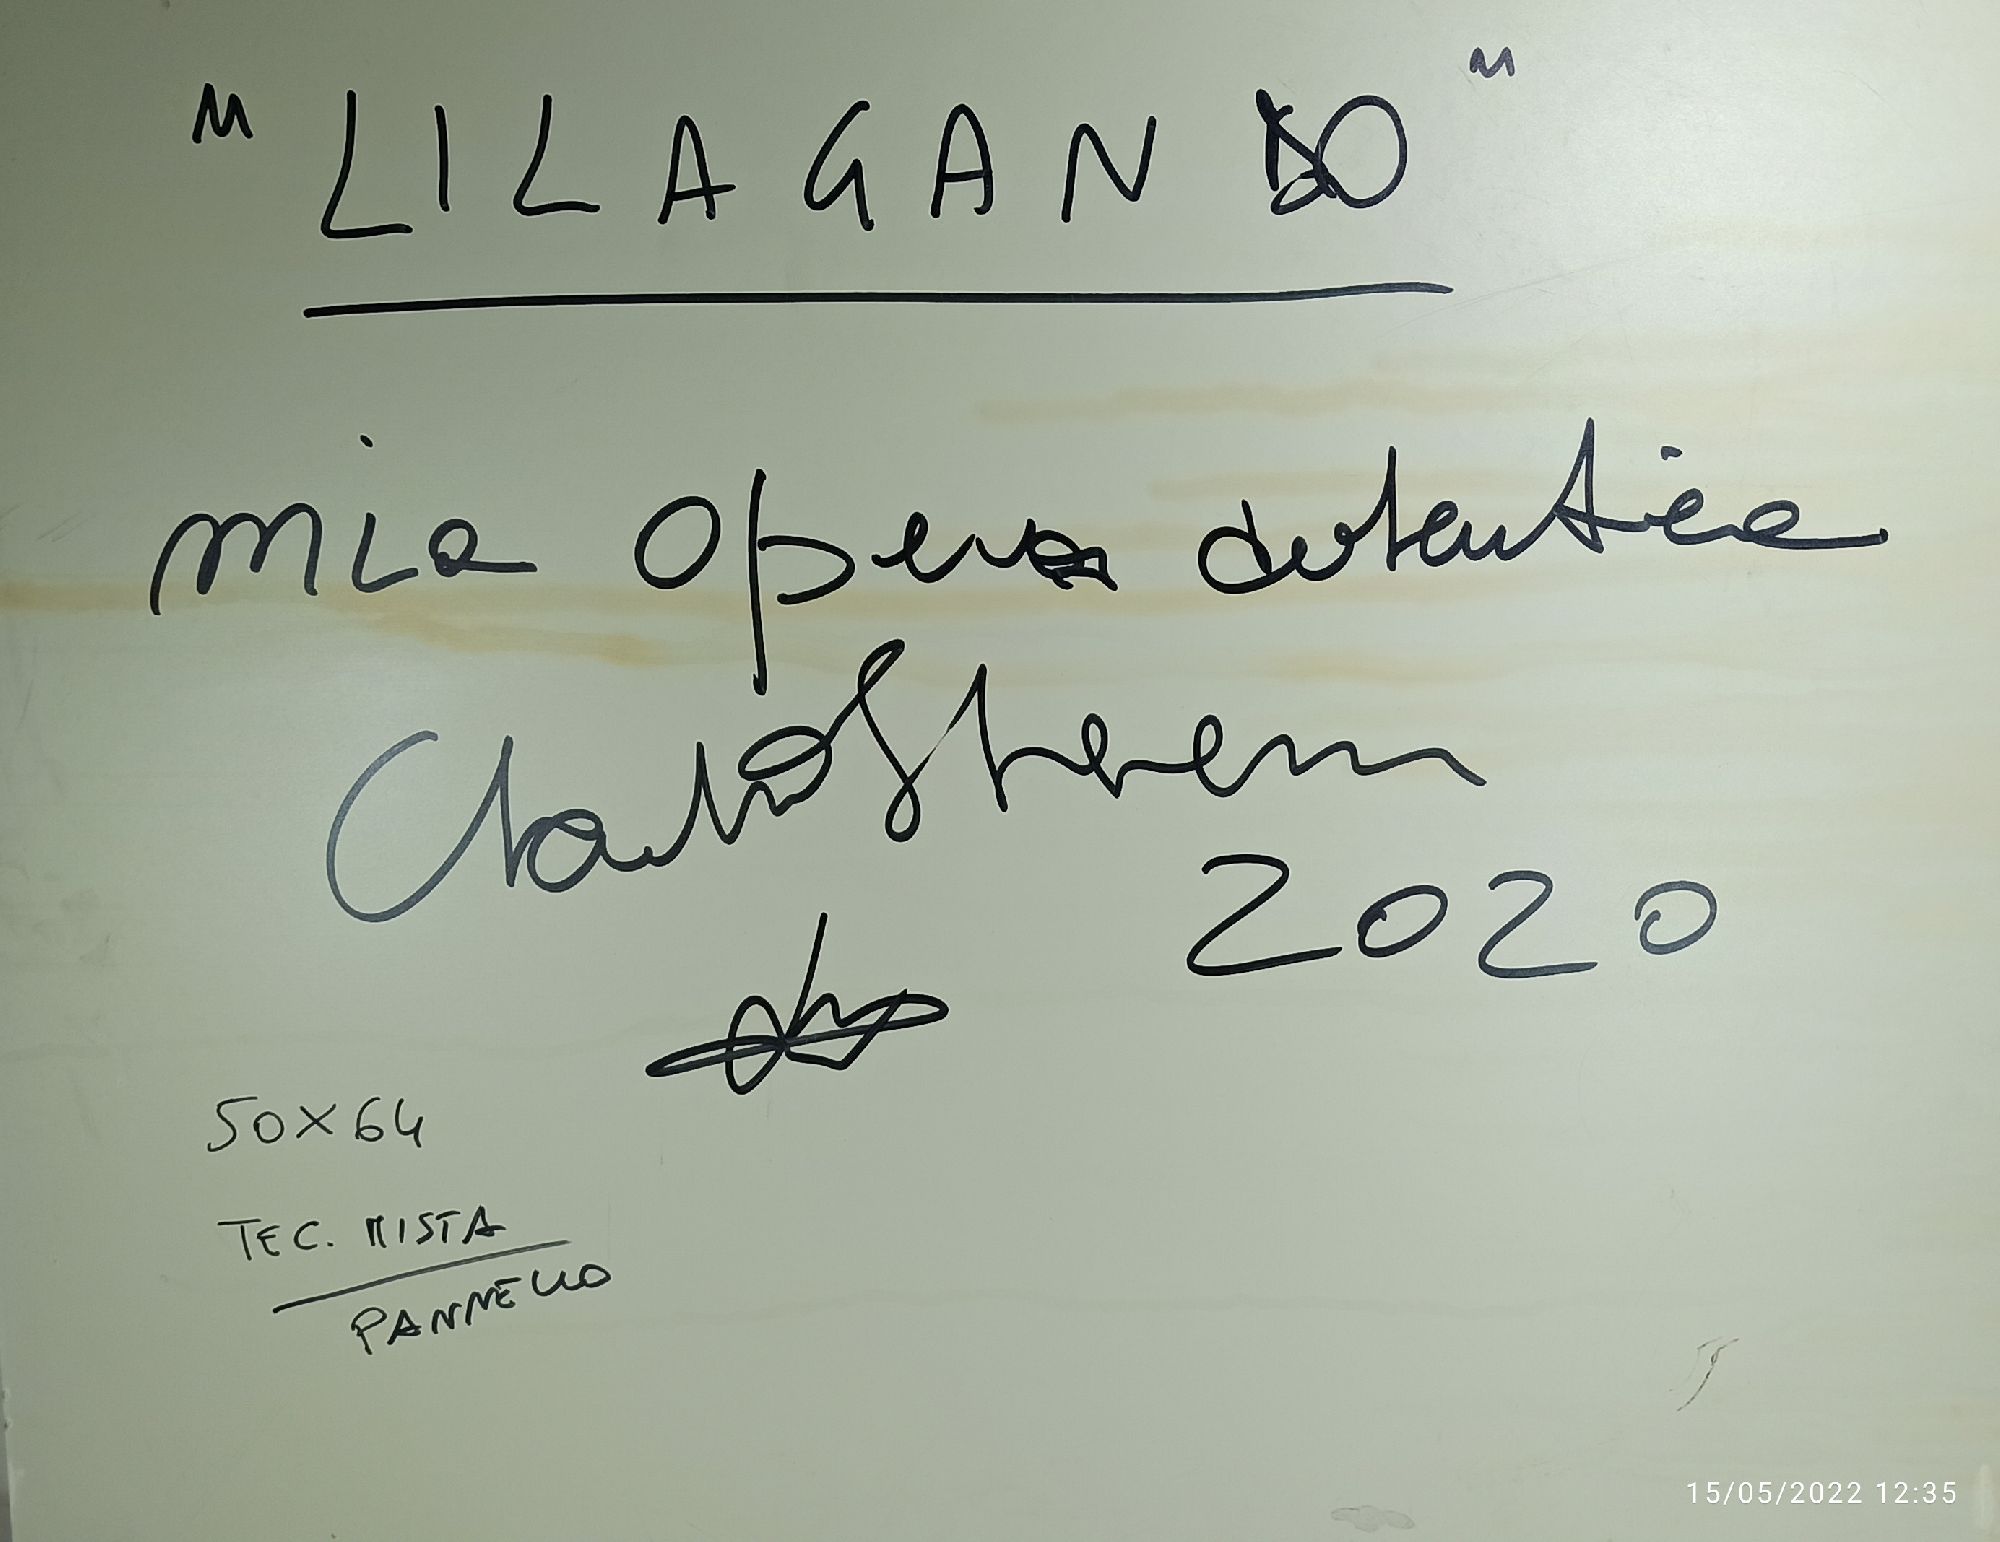 "LILAGANDO"
mia opera autentica
2020
50X64
TEC. MISTA
PANNELLO
15/05/2022 12:35